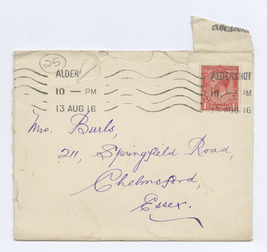 25
ALDER ALDERSHOT
10 - PM 10 - PM
13 AUG 16 13 AUG 16
Mrs. Burls,
211, Springfield Road,
Chelmsford,
Essex.